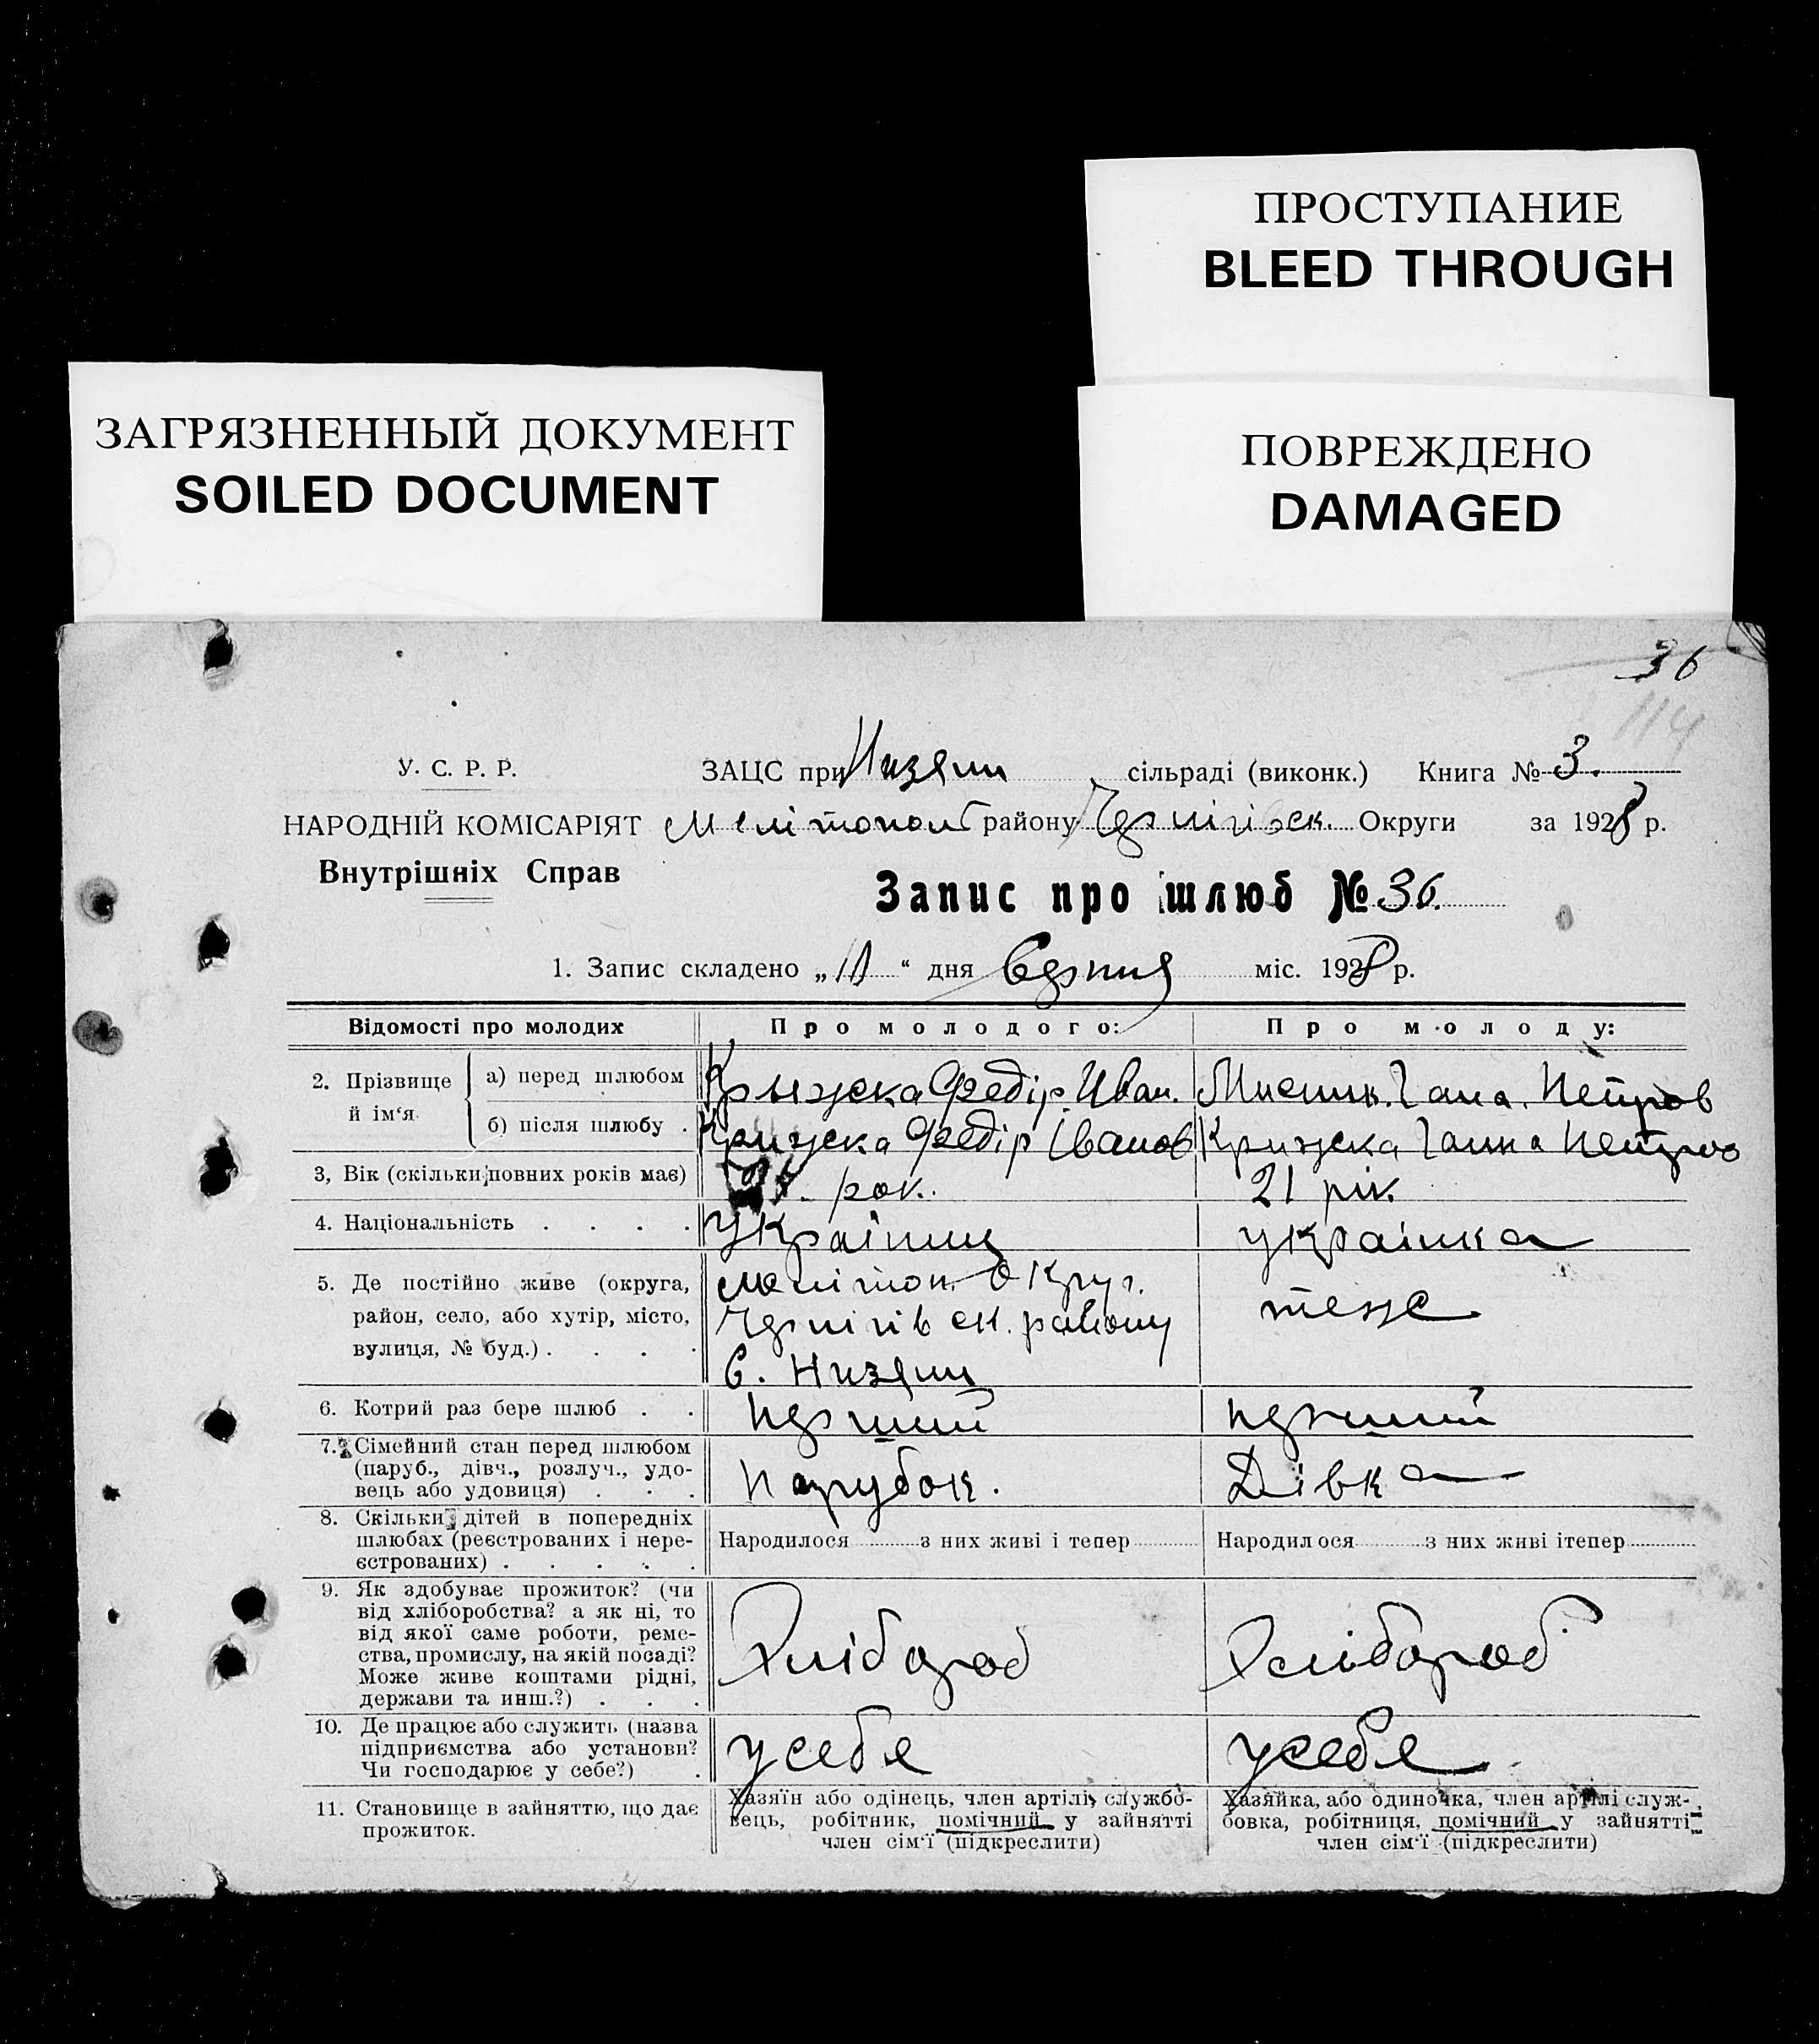 ПРОСТУПАНИЕ
BLEED THROUGH
ЗАГРЯЗНЕННЫЙ ДОКУМЕНТ
SOILED DOCUMENT
ПОВРЕЖДЕНО
DAMAGED
36
114
У. С. Р. Р.
ЗАЦС при Низяни сільраді (виконк.) Книга № 3.
НАРОДНІЙ КОМІСАРІЯТ Мелітопол району Чернігівск. Округи за 1928 р.
Внутрішніх Справ
Запис про шлюб № 36.
1. Запис складено „ “ дня Серпня міс. 1928 р.
Відомості про молодих
Про молодого:
Про молоду:
2. Прізвище й ім‘я
а) перед шлюбом
Крыжска Федір. Иван.
Гана. Петров
б) після шлюбу .
Крижска Федір Іванов
Крижска Ганна Петров
3, Вік (скільки повних років має)
рок.
21 рік.
4. Національність . . . .
Українец
українка
5. Де постійно живе (округа,
район, село, або хутір, місто,
вулиця, № буд.) . . . .
Мелітоп. Округ.
Чернігівск. району
С. Низяни
теже
6. Котрий раз бере шлюб . .
перший
перший
7. Сімейний стан перед шлюбом
(паруб., дівч., розлуч., удо-
вець або удовиця) . . .
Парубок.
Дівка
8. Скільки дітей в попередніх
шлюбах (реєстрованих і нере-
єстрованих) . . . . .
Народилося з них живі і тепер
Народилося з них живі ітепер
9. Як здобуває прожиток? (чи
від хліборобства? а як ні, то
від якої саме роботи, реме-
ства, промислу, на якій посаді?
Може живе коштами рідні,
держави та инш.?) . . .
Хлібороб
Хлібороб
10. Де працює або служить (назва
підприємства або установи?
Чи господарює у себе?) .
усебе
усебе
11. Становище в зайняттю, що дає
прожиток.
Хазяїн або одінець, член артілі, службо-
вець, робітник, помічний у зайнятті
член сім‘ї (підкреслити)
Хазяйка, або одиночка, член артілі служ-
бовка, робітниця, помічний у зайнятті
член сім‘ї (підкреслити)